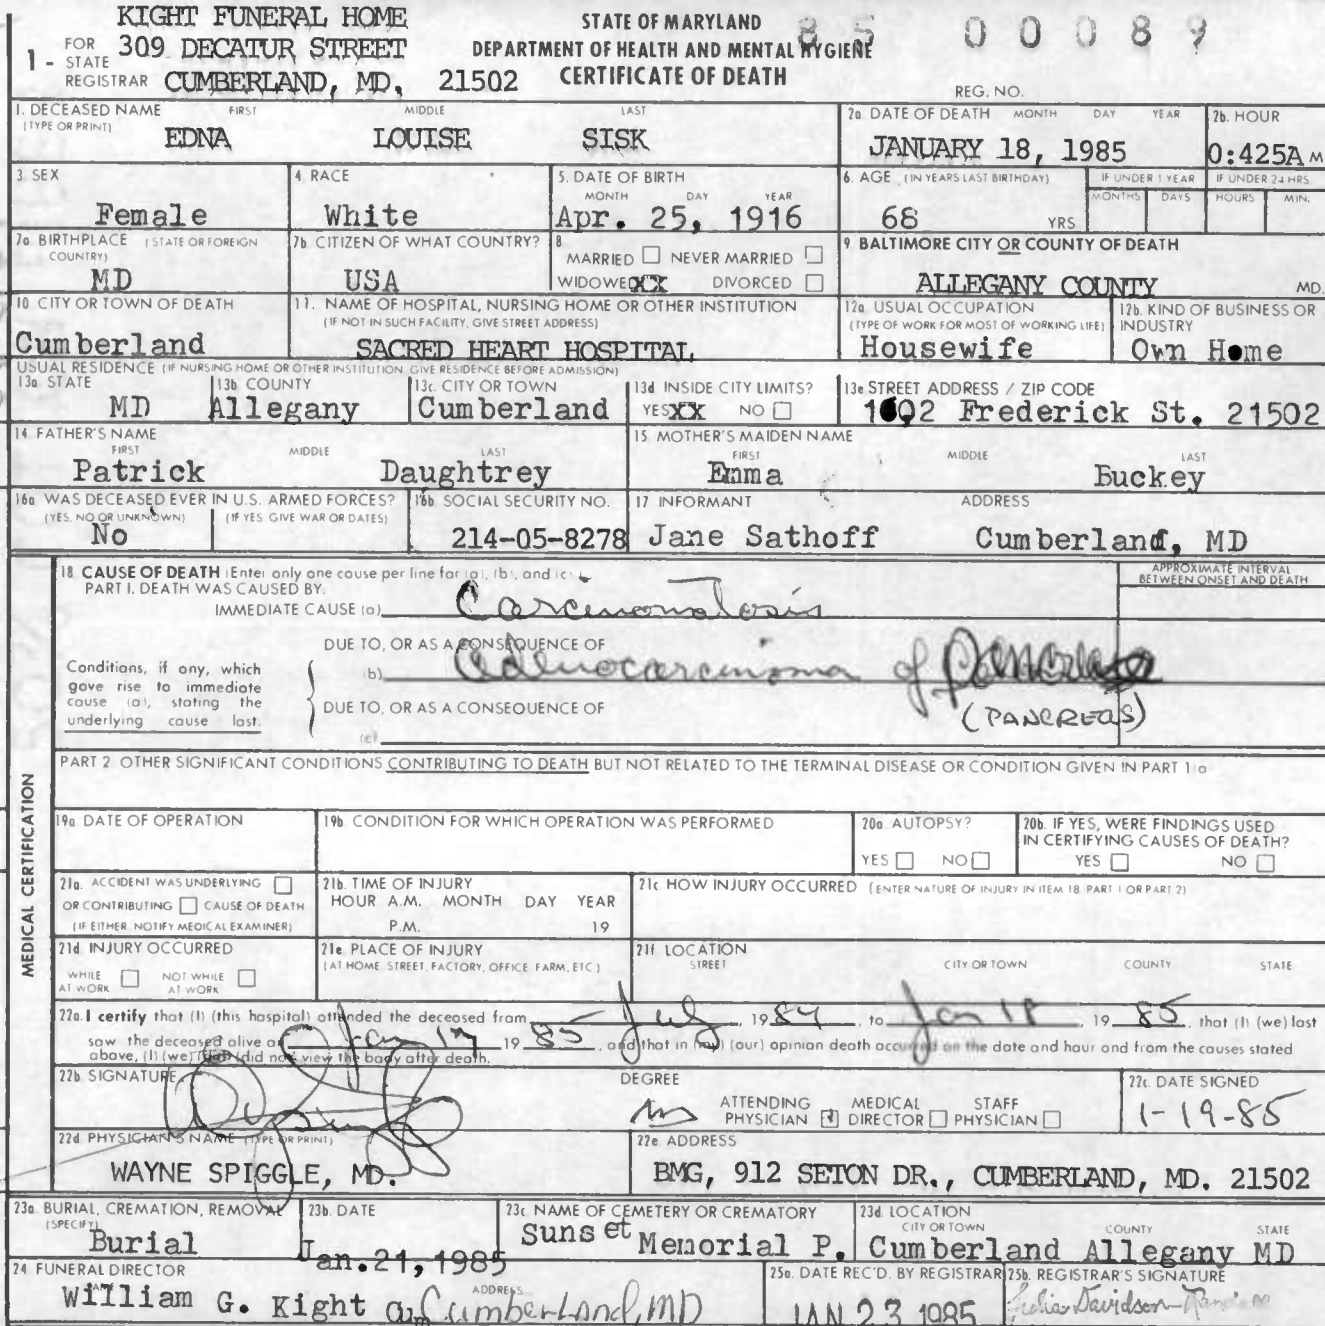 KIGHT FUNERAL HOME
309 DECATUR STREET
CUMBERLAND, MD. 21502
1 - FOR STATE REGISTRAR
STATE OF MARYLAND
DEPARTMENT OF HEALTH AND MENTAL HYGIENE
CERTIFICATE OF DEATH
85 00089
REG. NO.
1. DECEASED NAME (TYPE OR PRINT) FIRST MIDDLE LAST
EDNA LOUISE SISK
2a DATE OF DEATH MONTH DAY YEAR
JANUARY 18, 1985
2b. HOUR
0:425A M
3. SEX
Female
4. RACE
White
5. DATE OF BIRTH MONTH DAY YEAR
Apr. 25, 1916
6. AGE (IN YEARS LAST BIRTHDAY)
68 YRS
IF UNDER 1 YEAR MONTHS DAYS
IF UNDER 24 HRS. HOURS MIN.
7a BIRTHPLACE (STATE OR FOREIGN COUNTRY)
MD
7b. CITIZEN OF WHAT COUNTRY?
USA
8
MARRIED NEVER MARRIED
WIDOWEDXX DIVORCED
9 BALTIMORE CITY OR COUNTY OF DEATH
ALLEGANY COUNTY MD.
10 CITY OR TOWN OF DEATH
Cumberland
11. NAME OF HOSPITAL, NURSING HOME OR OTHER INSTITUTION
(IF NOT IN SUCH FACILITY, GIVE STREET ADDRESS)
SACRED HEART HOSPITAL
12a USUAL OCCUPATION
(TYPE OF WORK FOR MOST OF WORKING LIFE)
Housewife
12b. KIND OF BUSINESS OR INDUSTRY
Own Home
USUAL RESIDENCE (IF NURSING HOME OR OTHER INSTITUTION GIVE RESIDENCE BEFORE ADMISSION)
13a STATE
MD
13b COUNTY
Allegany
13c. CITY OR TOWN
Cumberland
13d INSIDE CITY LIMITS?
YESXX NO
13e STREET ADDRESS / ZIP CODE
Frederick St. 21502
14 FATHER'S NAME FIRST MIDDLE LAST
Patrick Daughtrey
15 MOTHER'S MAIDEN NAME FIRST MIDDLE LAST
Emma Buckey
16a WAS DECEASED EVER IN U.S. ARMED FORCES?
(YES, NO OR UNKNOWN) (IF YES GIVE WAR OR DATES)
No
16b SOCIAL SECURITY NO.
214-05-8278
17 INFORMANT ADDRESS
Jane Sathoff Cumberland, MD
MEDICAL CERTIFICATION
18 CAUSE OF DEATH (Enter only one cause per line for (a), (b), and (c)
PART I. DEATH WAS CAUSED BY:
IMMEDIATE CAUSE (a) Carcinomatosis
APPROXIMATE INTERVAL BETWEEN ONSET AND DEATH
Conditions, if any, which gave rise to immediate cause (a), stating the underlying cause last.
DUE TO, OR AS A CONSEQUENCE OF
(b) Adenocarcinoma of
(PANCREAS)
DUE TO, OR AS A CONSEQUENCE OF
(c)
PART 2 OTHER SIGNIFICANT CONDITIONS CONTRIBUTING TO DEATH BUT NOT RELATED TO THE TERMINAL DISEASE OR CONDITION GIVEN IN PART 1 a
19a DATE OF OPERATION
19b. CONDITION FOR WHICH OPERATION WAS PERFORMED
20a AUTOPSY?
YES NO
20b. IF YES, WERE FINDINGS USED IN CERTIFYING CAUSES OF DEATH?
YES NO
21a. ACCIDENT WAS UNDERLYING
OR CONTRIBUTING CAUSE OF DEATH
(IF EITHER, NOTIFY MEDICAL EXAMINER)
21b. TIME OF INJURY
HOUR A.M. MONTH DAY YEAR
P.M. 19
21c HOW INJURY OCCURRED (ENTER NATURE OF INJURY IN ITEM 18 PART 1 OR PART 2)
21d INJURY OCCURRED
WHILE AT WORK NOT WHILE AT WORK
21e PLACE OF INJURY
(AT HOME STREET, FACTORY, OFFICE FARM, ETC)
21f LOCATION
STREET CITY OR TOWN COUNTY STATE
22a. I certify that (I) (this hospital) attended the deceased from July, 1984, to Jan 18, 1985, that (I) (we) last
saw the deceased alive on Jan 1985, and that in (my) (our) opinion death occurred on the date and hour and from the causes stated
above, (I) (we) (did) (did not) view the body after death.
22b SIGNATURE
DEGREE
MD
ATTENDING PHYSICIAN MEDICAL DIRECTOR STAFF PHYSICIAN
22c. DATE SIGNED
1-19-85
22d PHYSICIAN'S NAME (TYPE OR PRINT)
WAYNE SPIGGLE, MD.
22e ADDRESS
BMG, 912 SETON DR., CUMBERLAND, MD. 21502
23a. BURIAL, CREMATION, REMOVAL (SPECIFY)
Burial
23b. DATE
Jan. 21, 1985
23c NAME OF CEMETERY OR CREMATORY
Sunset Memorial P.
23d. LOCATION
CITY OR TOWN COUNTY STATE
Cumberland Allegany MD
24 FUNERAL DIRECTOR
ADDRESS
William G. Kight Cumberland, MD
25a. DATE REC'D. BY REGISTRAR
JAN 23 1985
25b. REGISTRAR'S SIGNATURE
Julia Davidson-